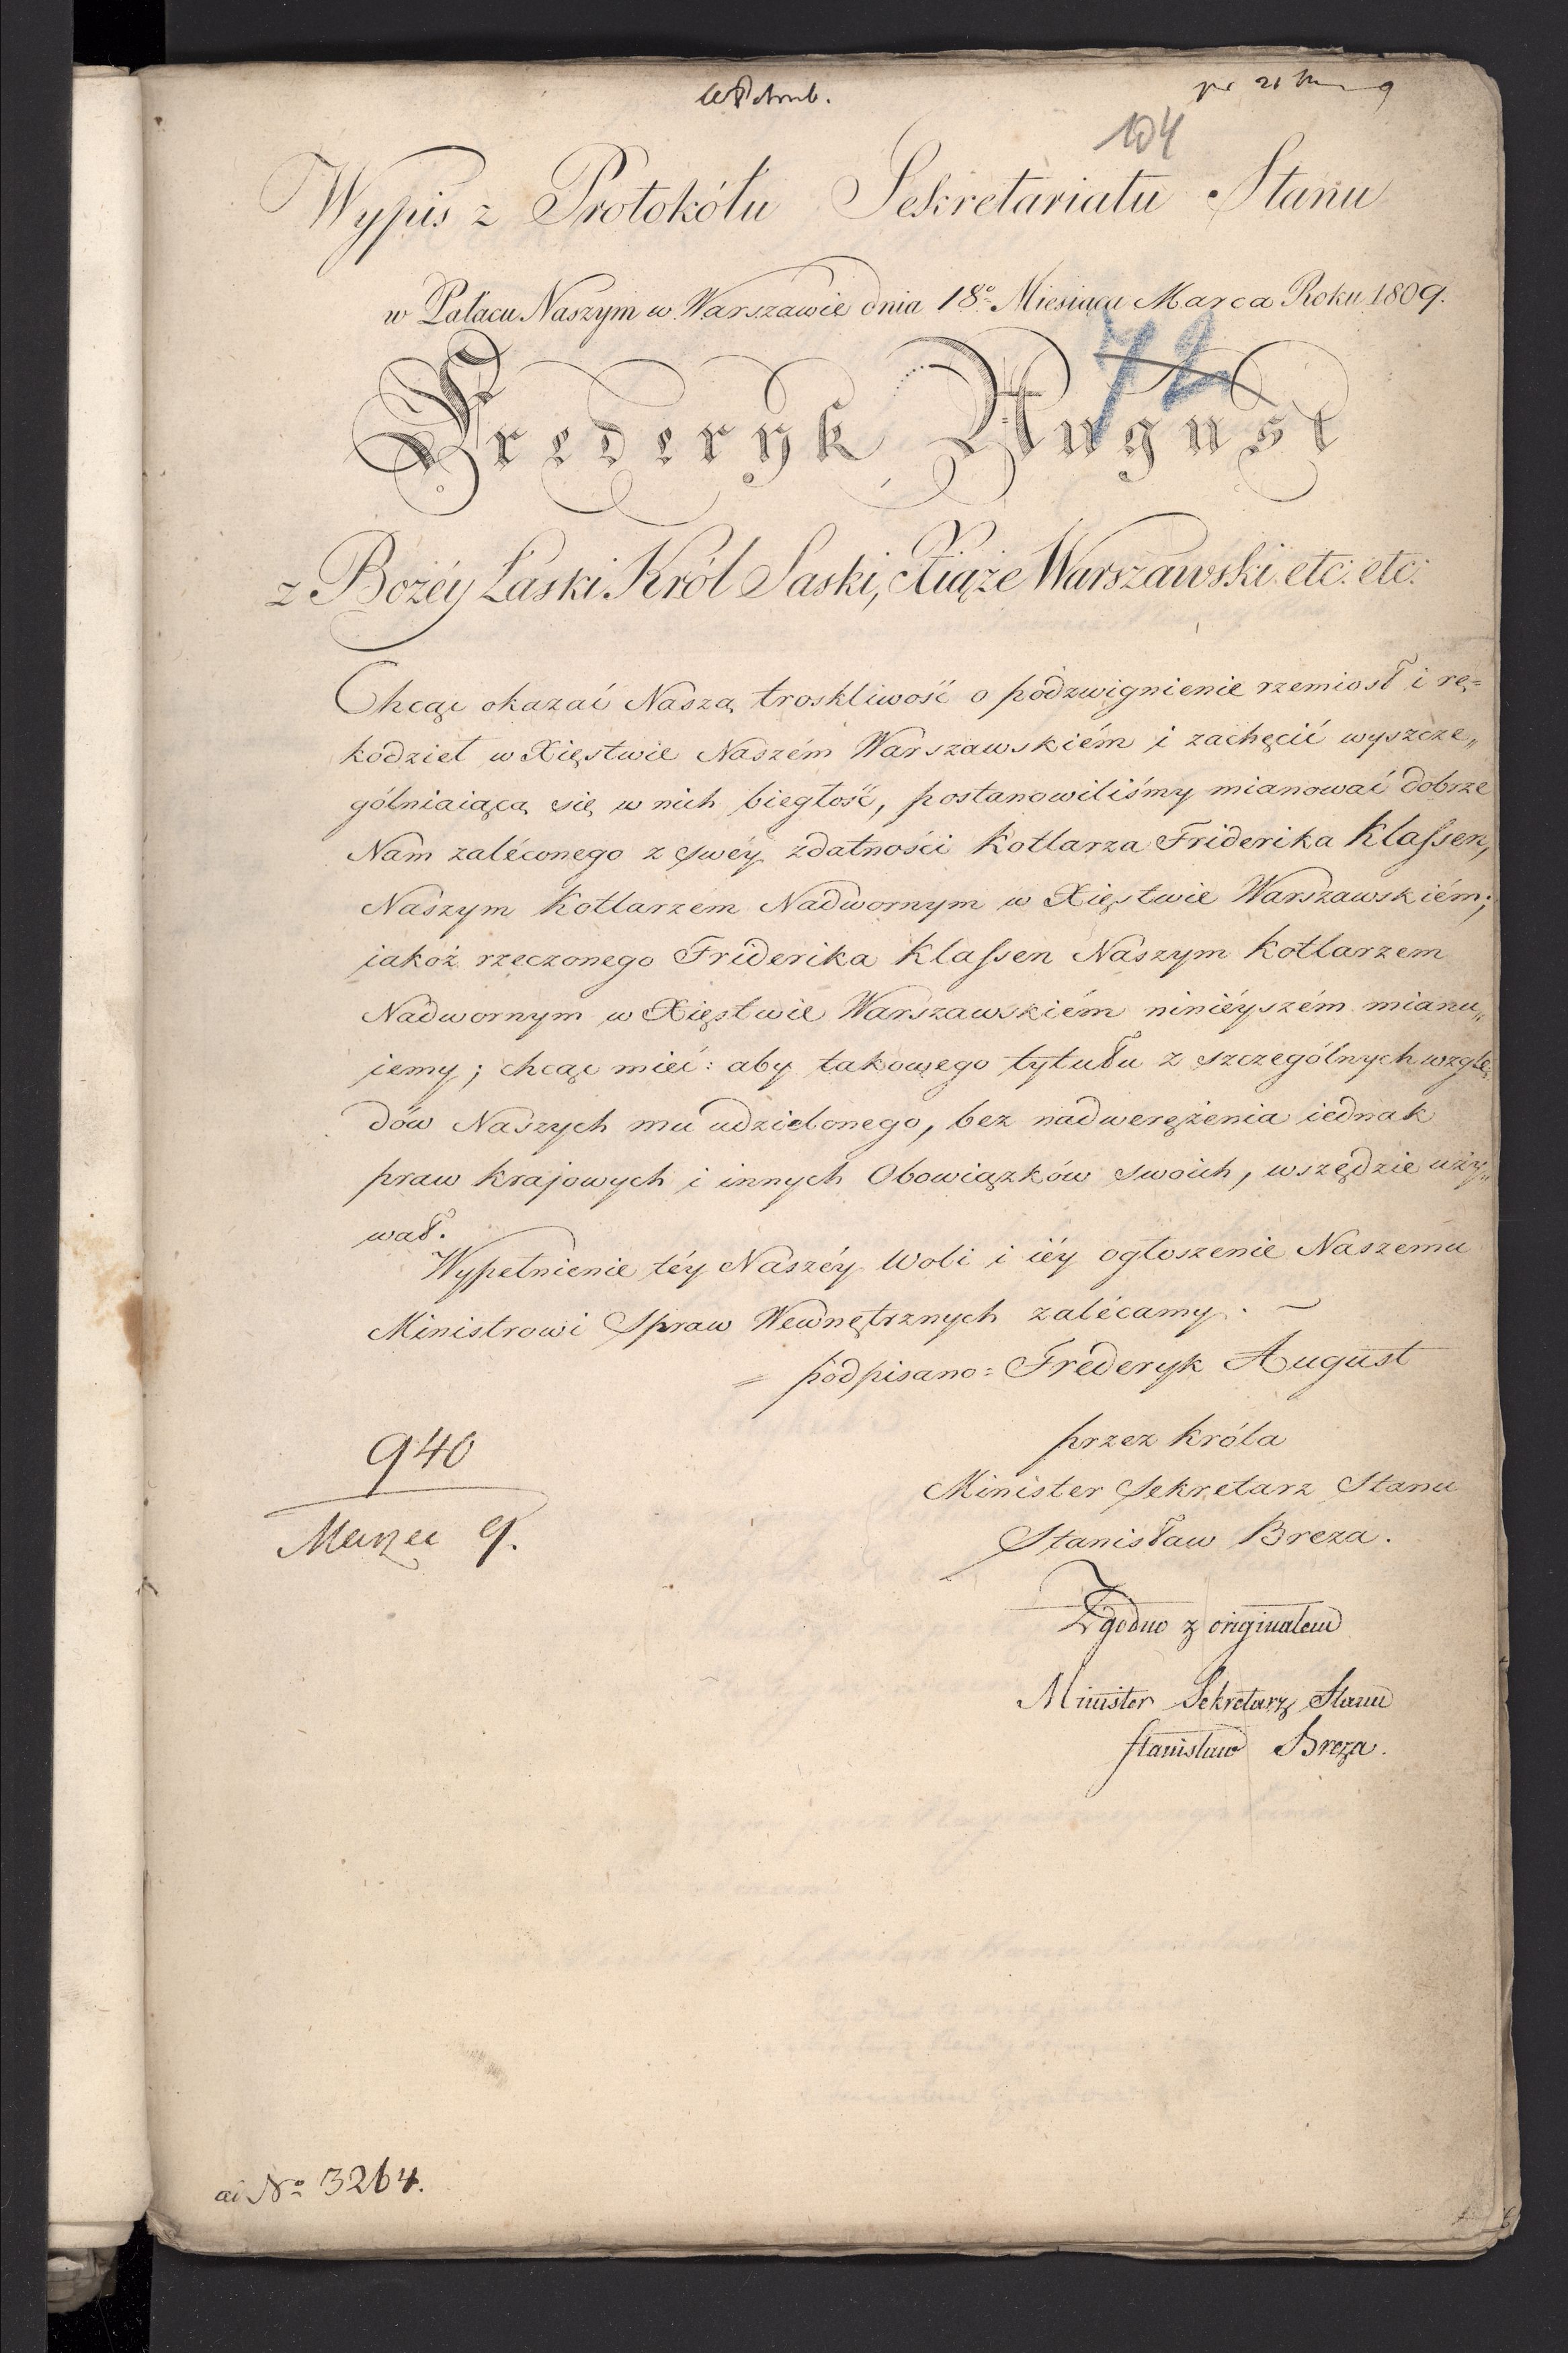 104
Wypis z Protokółu Sekretariatu Stanu
w Pałacu Naszym w Warszawie dnia 18º Miesiąca Marca Roku 1809.
72
Frederyk August
z Bożéy Łaski Król Saski, Xiąże Warszawski etc: etc:
Chcąc okazać Naszą troskliwość o podzwignienie rzemiosł i rę=
kodzieł w Xięstwie Naszém Warszawskiém i zachęcić wyszcze„
gólniaiącą się w nich biegłość, postanowiliśmy mianować dobrze
Nam zaléconego z swéy zdatności Kotlarza Friderika Klaſsen,
Naszym Kotlarzem Nadwornym w Xięstwie Warszawskiém;
iakoż rzeczonego Friderika Klaſsen Naszym Kotlarzem
Nadwornym w Xięstwie Warszawskiém niniéyszém mianu„
iemy; chcąc mieć: aby takowego tytułu z szczególnych wzglę„
dów Naszych mu udzielonego, bez nadweręzenia iednak
praw krajowych i innych Obowiązków swoich, wszędzie uży„
wał.
Wypełnienie téy Naszéy Woli i iéy ogłoszenie Naszemu
Ministrowi Spraw Wewnętrznych zalécamy. ~
= podpisano = Frederyk August
przez Króla
940
Minister Sekretarz Stanu
Marzec 9.
Stanisław Breza.
Zgodno z originałem
Minister Sekretarz Stanu
Stanisław Breza.
ad Nº 3264.